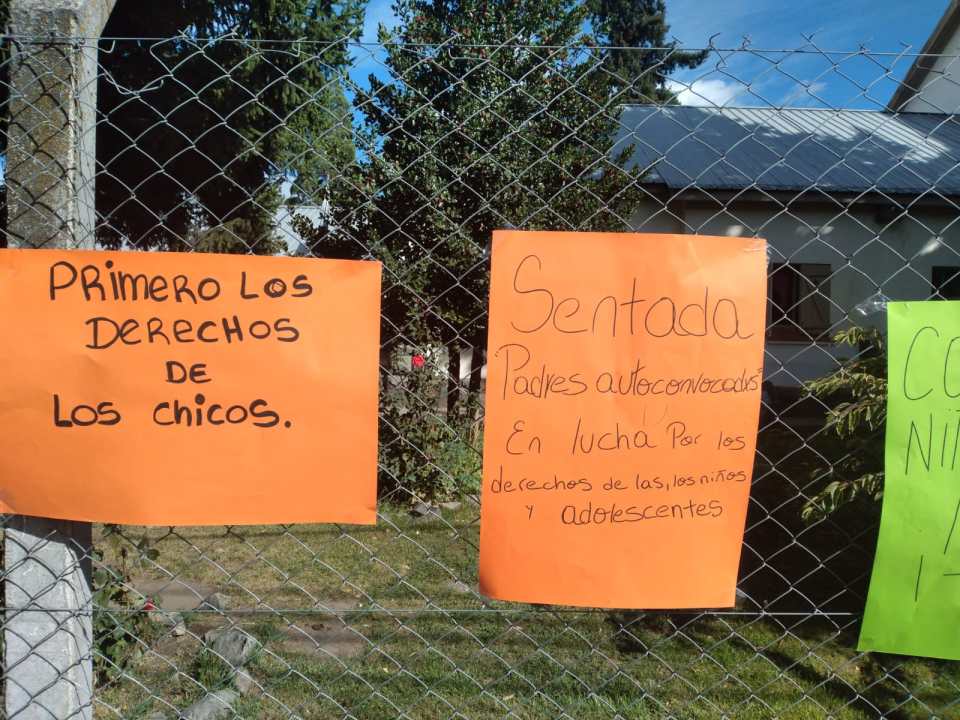 PRIMERO LOS
DERECHOS
DE
LOS CHICOS.
Sentada
Padres autoconvocados"
En lucha Por los
derechos de las, los niños
y adolescentes